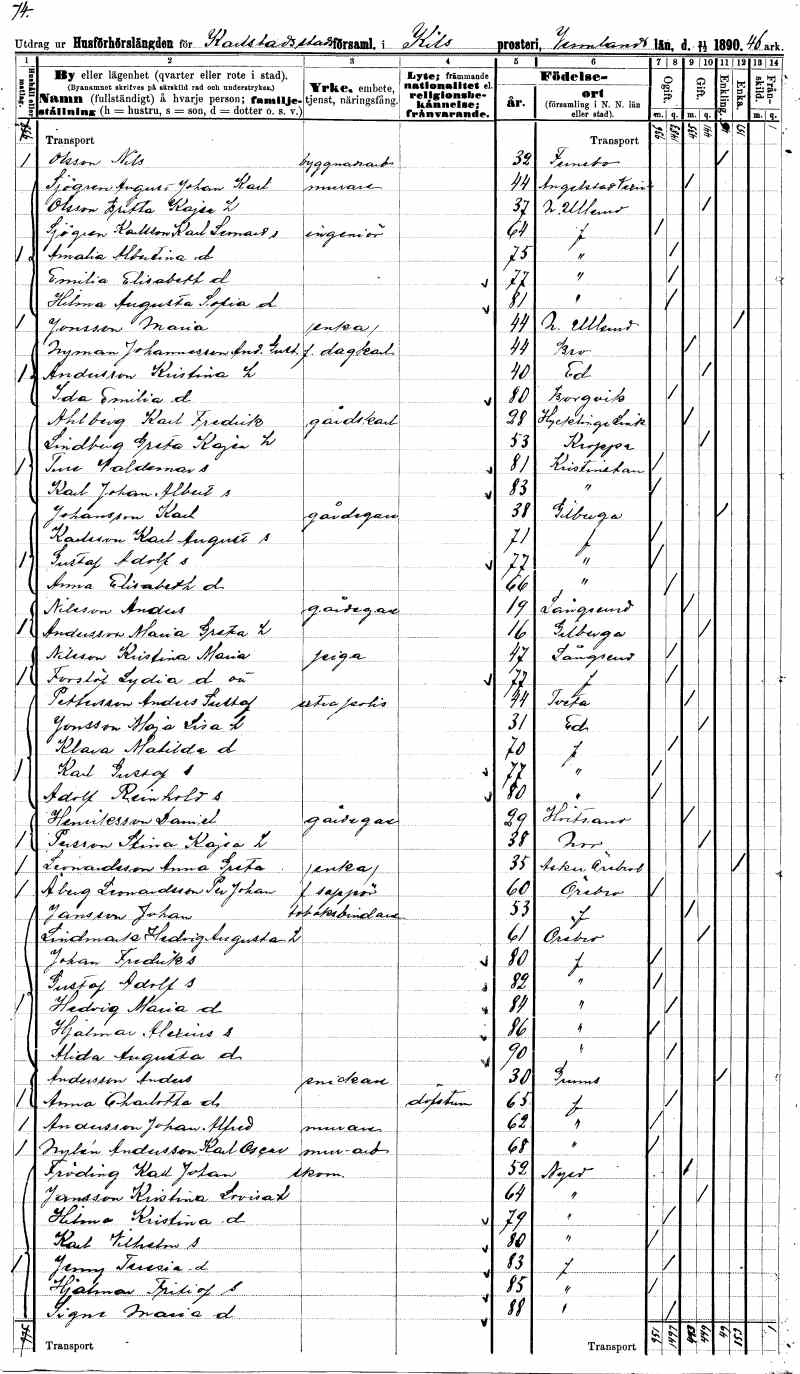 74.
Utdrag ur Husförhörslängden för Karlstads stads församl. i Kils prosteri, Vermlands län, d. 31/12 1890. 46 ark.
1 2 3 4 5 6 7 8 9 10 11 12 13 14
Hushåll eller matlag.
By eller lägenhet (qvarter eller rote i stad).
(Byanamnet skrifves på särskild rad och understrykes.)
Namn (fullständigt) å hvarje person; familjeställning (h = hustru, s = son, d = dotter o. s. v.)
Yrke, embete, tjenst, näringsfång.
Lyte; främmande nationalitet el. religionsbekännelse; frånvarande.
Födelse-
år.
ort
(församling i N. N. län eller stad).
Ogift. Gift. Enkling. Enka. Frånskild.
m. q. m. q. m. q.
Transport Transport
1 Olsson Nils byggnadsarb 32 Funebo /
Sjögren August Johan Karl murare 44 /
Olsson Britta Kajsa h 37 N. Ullerud /
Sjögren Karlsson Karl Lennart s ingeniör 64 f /
1 Amalia Albertina d 75 " /
Emilia Elisabeth d 77 " /
Hilma Augusta Sofia d 81 " /
1 Jonsson Maria /enka/ 44 N. Ullerud /
Nyman Johannesson And. Gust. f. dagkarl 44 Bro /
1 Andersson Kristina h 40 Ed /
Ida Emilia d 80 Borgvik /
Ahlberg Karl Fredrik gårdskarl 28 Hycklinge Link /
Lindberg Greta Kajsa h 53 Kroppa /
1 Ture Valdemar s 81 Kristinehamn /
Karl Johan Albert s 83 " /
Johansson Karl gårdsegare 38 Gilberga /
Karlsson Karl August s 71 f /
1 Gustaf Adolf s 77 " /
Anna Elisabeth d 66 " /
Nilsson Anders gårdsegare 19 Långserud /
1 Andersson Maria Greta h 16 Gilberga /
Nilsson Kristina Maria piga 47 Långserud /
1 Lydia d oä 77 f /
Pettersson Anders Gustaf extra polis 44 Tveta /
Jonsson Maja Lisa h 31 Ed /
Klara Matilda d 70 f /
1 Karl Gustaf s 77 " /
Adolf Reinhold s 80 " /
Henriksson Daniel gårdsegare 29 Hvitsand /
1 Persson Stina Kajsa h 38 Nor /
1 Leonardsson Anna Greta /enka/ 35 Asker Örebro l /
1 Åberg Leonardsson Per Johan f. sappör 60 Örebro /
Jansson Johan tobaksbindare 53 f /
Lindmark Hedvig Augusta h 61 Örebro /
Johan Fredrik s 80 f /
Gustaf Adolf s 82 " /
1 Hedvig Maria d 84 " /
Hjalmar Alexius s 86 " /
Alida Augusta d 90 " /
Andersson Anders snickare 30 Grums /
1 Anna Charlotta d döfstum 65 f /
1 Andersson Johan Alfred murare 62 " /
1 Nylén Andersson Karl Oscar mur-arb 68 " /
Fröding Karl Johan skom. 52 Nyed /
Jansson Kristina Lovisa h 64 " /
Hilma Kristina d 79 " /
Karl Vilhelm s 80 " /
1 Jenny Teresia d 83 f /
Hjalmar Fritiof s 85 " /
Signe Maria d 88 " /
Transport Transport